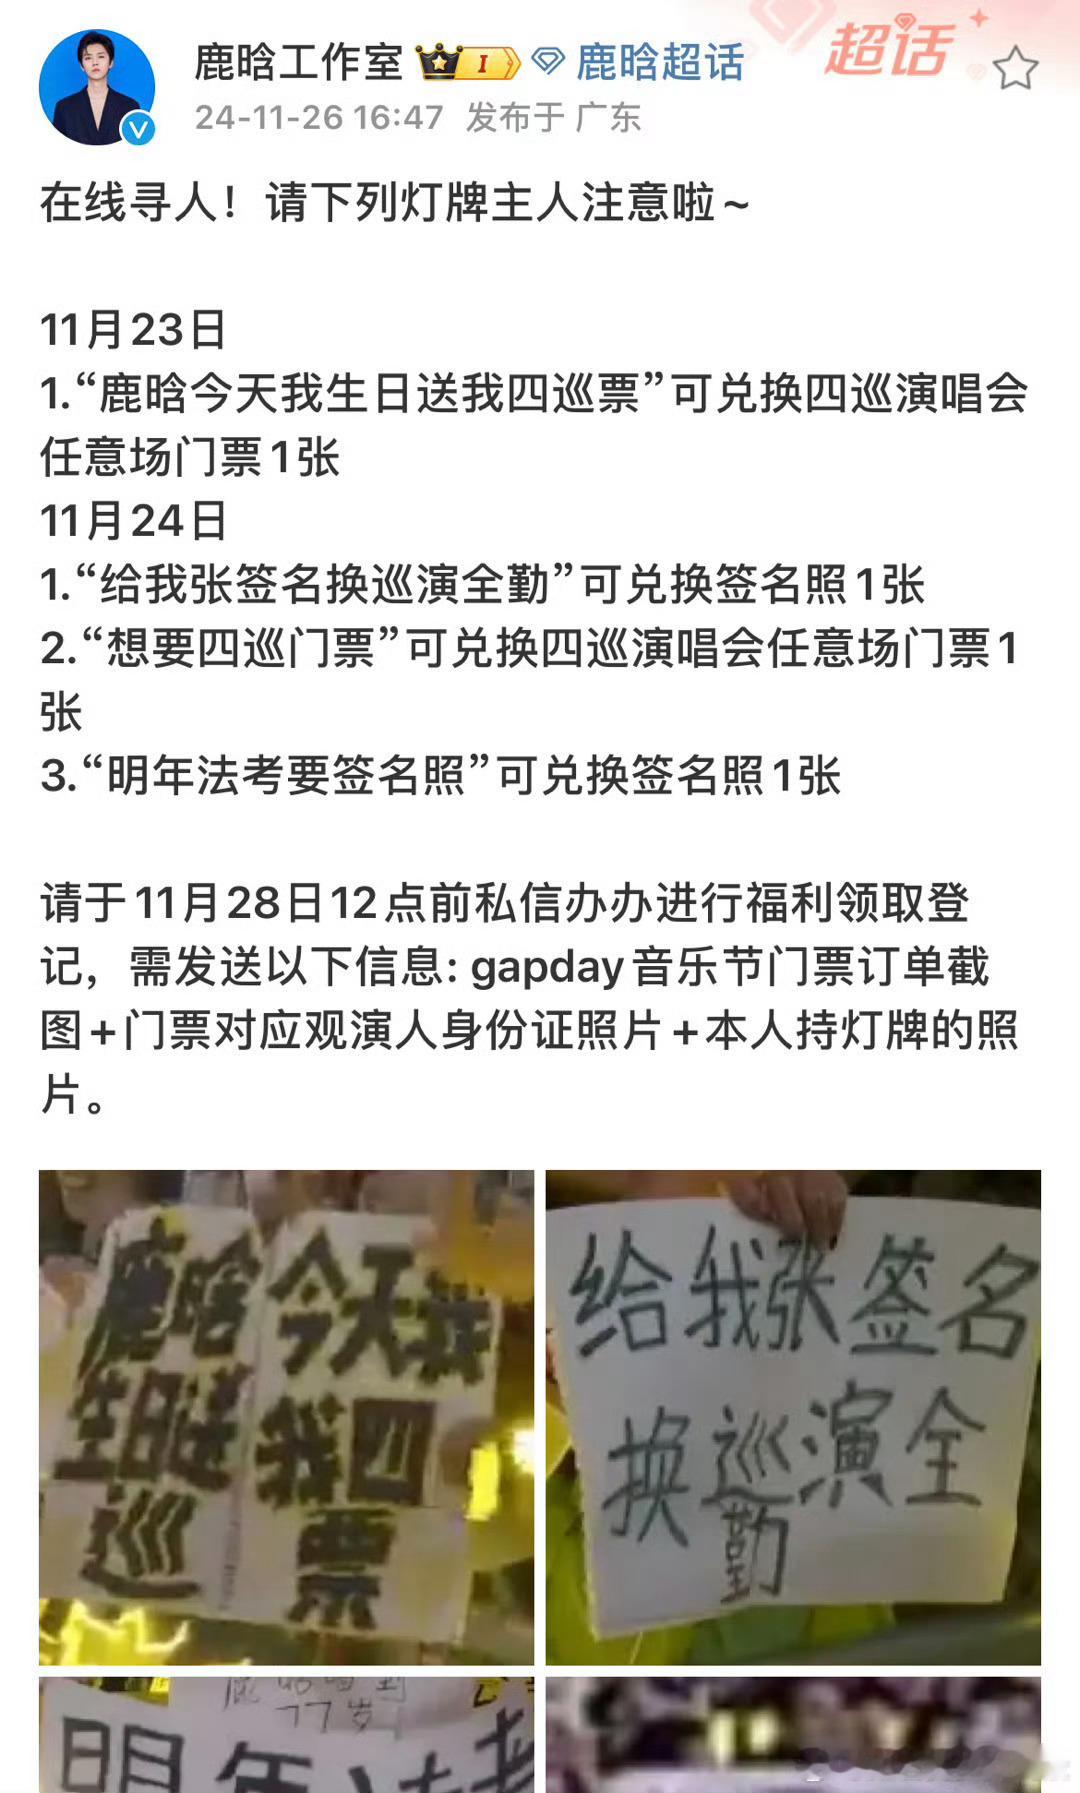 鹿晗工作室 I 鹿晗超话
超话
24-11-26 16:47 发布于 广东
在线寻人！请下列灯牌主人注意啦~
11月23日
1.“鹿晗今天我生日送我四巡票”可兑换四巡演唱会
任意场门票1张
11月24日
1.“给我张签名换巡演全勤”可兑换签名照1张
2.“想要四巡门票”可兑换四巡演唱会任意场门票1
张
3.“明年法考要签名照”可兑换签名照1张
请于11月28日12点前私信办办进行福利领取登
记，需发送以下信息: gapday音乐节门票订单截
图+门票对应观演人身份证照片+本人持灯牌的照
片。
鹿晗今天我
生日送我四
巡票
给我张签名
换巡演全
勤
77岁
明年法考